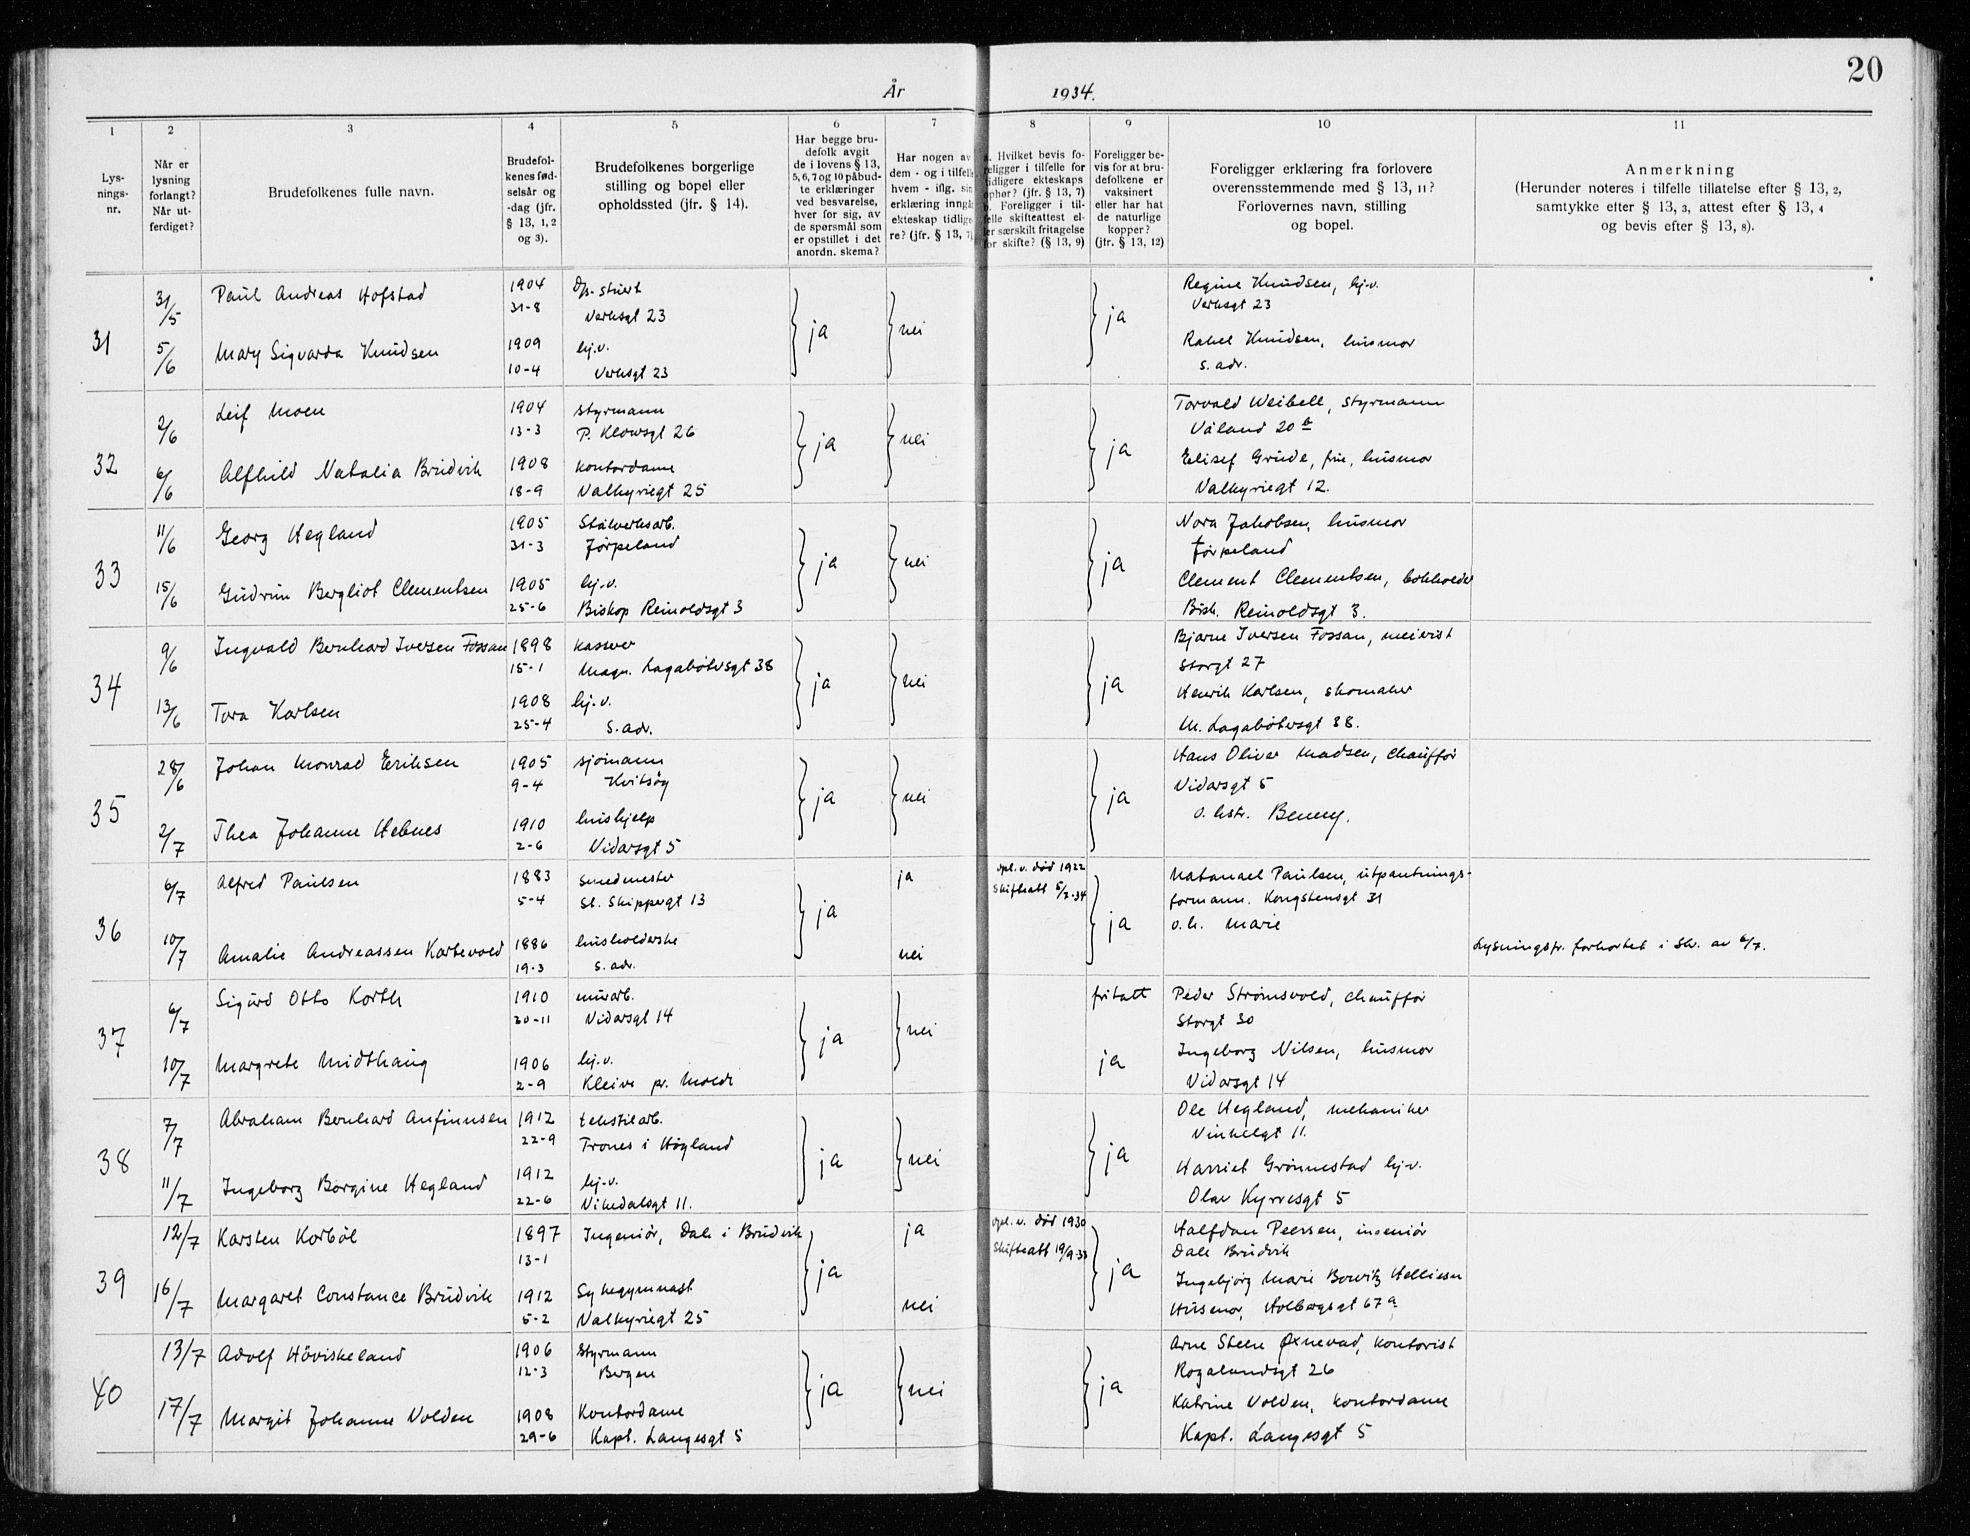 20
År 1934.
1 2 3 4 5 6 7 8 9 10 11
Lys-
nings-
nr.
Når er
lysning
forlangt?
Når ut-
ferdiget?
Brudefolkenes fulle navn.
Brudefol-
kenes fød-
selsår og
-dag (jfr.
§ 13, 1, 2
og 3).
Brudefolkenes borgerlige
stilling og bopel eller
opholdssted (jfr. § 14).
Har begge bru-
defolk avgit
de i lovens § 13,
5, 6, 7 og 10 påbud-
te erklæringer
ved besvarelse,
hver for sig, av
de spørsmål som
er opstillet i det
anordn. skema?
Har nogen av
dem - og i tilfelle
hvem - iflg. sin
erklæring inngå
ekteskap tidlige-
re? (jfr. § 13, 7)
a. Hvilket bevis fo-
religger i tilfelle for
tidligere ekteskaps
ophør? (jfr. § 13, 7)
b. Foreligger i til-
felle skifteattest el-
ler særskilt fritagelse
for skifte? (§ 13, 9)
Foreligger be-
vis for at bru-
defolkene er
vaksinert
eller har hat
de naturlige
kopper?
(jfr. § 13, 12)
Foreligger erklæring fra forlovere
overensstemmende med § 13, 11?
Forlovernes navn, stilling
og bopel.
Anmerkning
(Herunder noteres i tilfelle tillatelse efter § 13, 2,
samtykke efter § 13, 3, attest efter § 13, 4
og bevis efter § 13, 8).
31
31/5 Paul Andreas Hofstad 1904 31-8 Verksgt 23
5/6 Mary Sigvarda Knudsen 1909 10-4 hj.v. Verksgt 23
ja nei ja
Regine Knudsen, hj.v.
Verksgt 23
Rakel Knudsen, husmor
s. adr.
32
2/6 Leif Moen 1904 13-3 styrmann P. Klowsgt 26
6/6 Alfhild Natalia Brudvik 1908 18-9 kontordame Valkyriegt 25
ja nei ja
Torvald Weibell, styrmann
Våland 20
Elisef Grude, frue, husmor
Valkyriegt 12.
33
11/6 Georg Hegland 1905 31-3 Stålverksarb. Jørpeland
15/6 Gudrun Bergliot Clementsen 1905 25-6 hj.v. Biskop Reinoldsgt 3
ja nei ja
Nora Jakobsen, husmor
Jørpeland
Clement Clementsen, bokholder
Bisk. Reinoldsgt 3.
34
9/6 Ingvald Bernhard Iversen Fossan 1898 15-1 kasserer Magn. Lagabøtersgt 38
13/6 Tora Karlsen 1908 25-4 hj.v. S. adr.
ja nei ja
Bjarne Iversen Fossan, meierist
Storgt 27
Henrik Karlsen, skomaker
M. Lagabøtersgt 38.
35
28/6 Johan Monrad Eriksen 1905 9-4 sjømann Kvitsøy
2/7 Thea Johanne Hebnes 1910 2-6 hushjelp Vidarsgt 5
ja nei ja
Hans Oliver Madsen, chauffør
Vidarsgt 5
o. hstr. Benny.
36
6/7 Alfred Paulsen 1883 5-4 smedmester St. Skippergt 13
10/7 Amalie Andreassen Kartevold 1886 19-3 husholderske s. adr.
ja ja nei
opl. v. død 1922
skifteatt 5/2-34
ja
Natanael Paulsen, utpantnings-
formann. Kongstensgt 31
o.h. Marie
Lysningsfr. forkortet i skr. av 6/7.
37
6/7 Sigurd Otto Korth 1910 30-11 murarb. Vidarsgt 14
10/7 Margrete Midthaug 1906 2-9 hj.v. Kleive pr. Molde
ja nei fritatt ja
Peder Strømsvold, chauffør
Storgt 30
Ingeborg Nilsen, husmor
Vidarsgt 14
38
7/7 Abraham Bernhard Anfinnsen 1912 22-9 tekstilarb. Trones i Høgland
11/7 Ingeborg Borgine Hegland 1912 22-6 hj.v. Nikedalsgt 11.
ja nei ja
Ole Hegland, mekaniker
Vinkelgt 11.
Harriet Grønnestad hj.v.
Olav Kyrresgt 5
39
12/7 Karsten Korbøl 1897 13-1 Ingeniør, Dale i Brudvik
16/7 Margaret Constance Brudvik 1912 5-2 Sykegymnast Valkyriegt 25
ja ja nei
opl. v. død 1930
skifteatt 19/9-33
ja
Halfdan Peersen, ingeniør
Dale Brudvik
Ingebjørg Marie Bowitz Helliesen
Husmor, Holbergsgt 67a
40
13/7 Adolf Høviskeland 1906 12-3 styrmann Bergen
17/7 Margit Johanne Volden 1908 29-6 Kontordame Kapt. Langesgt 5
ja nei ja
Arne Steen Øxnevad, kontorist
Rogalandsgt 26
Katrine Volden, kontordame
Kapt. Langesgt 5